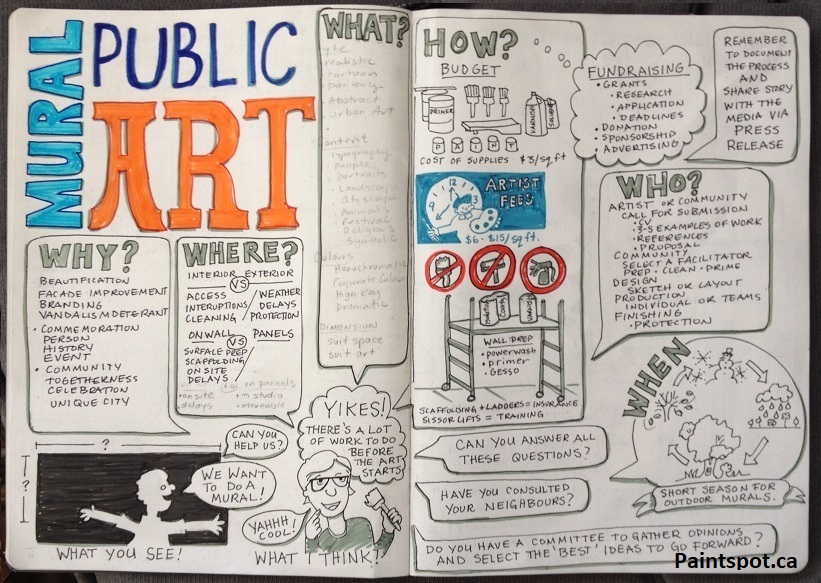 MURAL
PUBLIC
ART
WHY?
BEAUTIFICATION
FACADE IMPROVEMENT
BRANDING
VANDALISM DETERANT
• COMMEMORATION
PERSON
HISTORY
EVENT
• COMMUNITY
TOGETHERNESS
CELEBRATION
UNIQUE CITY
WHERE?
INTERIOR VS EXTERIOR
ACCESS
INTERUPTIONS
CLEANING
WEATHER
DELAYS
PROTECTION
ON WALL VS PANELS
SURFACE PREP
SCAFFOLDING
ON SITE
DELAYS
on panels
• on site
delays
• in studio
• moveable
WHAT?
realistic
cartoon
Abstract
urban Art
Content
Typography
people
portraits
• Landscape
cityscape
Animals
Festival
Religious
Symbolic
Colours
Monochromatic
Corporate Colour
High Key
Dramatic
DIMENSION
suit space
suit art
?
? 
CAN YOU
HELP US?
WE WANT
TO DO A
MURAL!
WHAT YOU SEE!
YIKES!
THERE'S A LOT
OF WORK TO DO
BEFORE
THE ART
STARTS
YAHHH,
COOL!
WHAT I THINK?
HOW?
BUDGET
PRIMER
VARNISH
PAINT
COST OF SUPPLIES $3/sq ft
ARTIST
FEES
12
3
6
9
$6-$15/sq ft.
VARNISH
WALL PREP
• powerwash
• primer
• Gesso
SCAFFOLDING + LADDERS = INSURANCE
SISSOR LIFTS = TRAINING
FUNDRAISING
• GRANTS
• RESEARCH
• APPLICATION
• DEADLINES
• DONATION
• SPONSORSHIP
• ADVERTISING
REMEMBER
TO DOCUMENT
THE PROCESS
AND
SHARE STORY
WITH THE
MEDIA VIA
PRESS
RELEASE
WHO?
ARTIST OR COMMUNITY
CALL FOR SUBMISSION
• CV
• 3-5 EXAMPLES OF WORK
• REFERENCES
• PROPOSAL
COMMUNITY
SELECT A FACILITATOR
PREP • CLEAN • PRIME
DESIGN
SKETCH OR LAYOUT
PRODUCTION
INDIVIDUAL OR TEAMS
FINISHING
• PROTECTION
WHEN
SHORT SEASON FOR
OUTDOOR MURALS.
CAN YOU ANSWER ALL
THESE QUESTIONS?
HAVE YOU CONSULTED
YOUR NEIGHBOURS?
DO YOU HAVE A COMMITTEE TO GATHER OPINIONS
AND SELECT THE 'BEST' IDEAS TO GO FORWARD?
Paintspot.ca